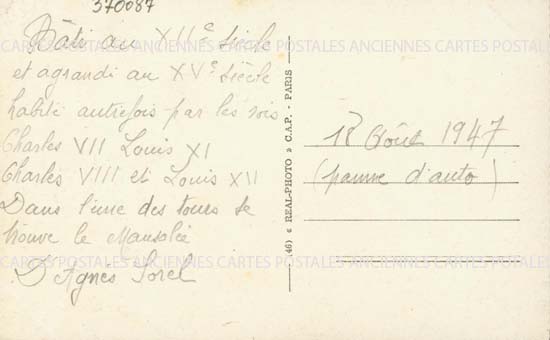 370087
Bâti au XIIe siècle
et agrandi au XVe siècle
habité autrefois par les rois
Charles VII Louis XI
Charles VIII et Louis XII
Dans l'une des tours se
trouve le Mausolée
D'Agnes Sorel
46) « REAL-PHOTO » C.A.P. - PARIS
18 Août 1947
(panne d'auto)
CARTES POSTALES ANCIENNES CARTES POSTALES ANCIENNES CARTES POSTALES
CARTES POSTALES ANCIENNES CARTES POSTALES ANCIENNES CARTES POSTALES